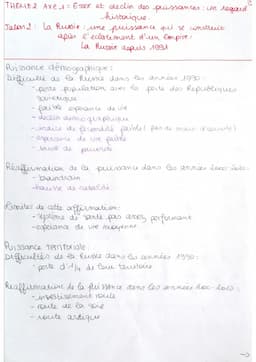 THEME 2 Axe 1 : Essor et déclin des puissances : un regard
historique.
Jalon 2 : La Russie : une puissance qui se construit
après l'éclatement d'un Empire :
La Russie depuis 1991
Puissance démographique :
Difficultés de la Russie dans les années 1990 :
- perte population avec la perte des Républiques
soviétique
- faible espérance de vie
- déclin démographique
- indice de fécondité faible (pas de renouvellement)
- espérance de vie faible
- seuil de pauvreté
Réaffirmation de la puissance dans les années 2000-2020 :
- hausse de natalité
Limites de cette affirmation :
- système de santé pas assez performant
- espérance de vie moyenne
Puissance territoriale :
Difficultés de la Russie dans les années 1990 :
- perte d'1/4 de leur territoire
Réaffirmation de la puissance dans les années 2000-2020 :
- investissement route
- route de la soie
- route arctique
→